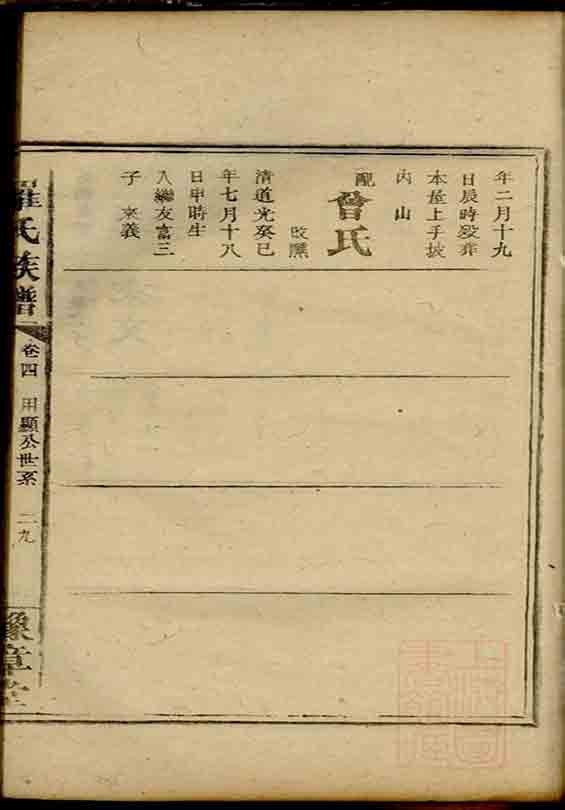 年二月十九
日辰時歿葬
本屋上手坡
內山
配曾氏
改醮
清道光癸巳
年七月十八
日申時生
入繼友富三
子來義
羅氏族譜
卷四 用顯公世系 二九
豫章堂